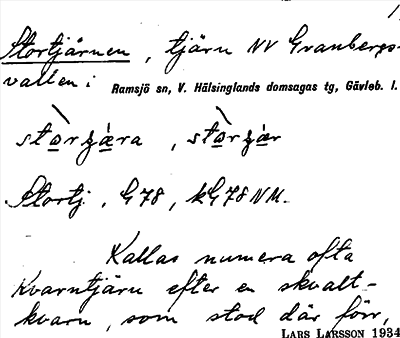 1
Stortjärnen, tjärn NV Granbergs-
vallen i Ramsjö sn, V. Hälsinglands domsagas tg, Gävleb. l.
Stortj, G78, kG78NM.
Kallas numera ofta
Kvarntjärn efter en skvalt-
kvarn, som stod där förr,
LARS LARSSON 1934